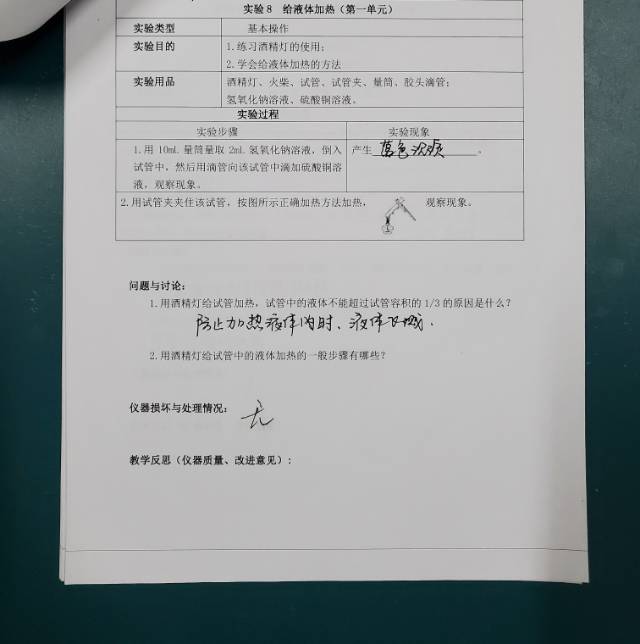 实验8 给液体加热（第一单元）
实验类型 基本操作
实验目的 1.练习酒精灯的使用；
2.学会给液体加热的方法
实验用品 酒精灯、火柴、试管、试管夹、量筒、胶头滴管；
氢氧化钠溶液、硫酸铜溶液。
实验过程
实验步骤 实验现象
1.用 10mL 量筒量取 2mL 氢氧化钠溶液，倒入 产生 蓝色沉淀 。
试管中，然后用滴管向该试管中滴加硫酸铜溶
液，观察现象。
2.用试管夹夹住该试管，按图所示正确加热方法加热， 观察现象。
问题与讨论：
1.用酒精灯给试管加热，试管中的液体不能超过试管容积的 1/3 的原因是什么？
防止加热液体内时、液体飞溅.
2.用酒精灯给试管中的液体加热的一般步骤有哪些？
仪器损坏与处理情况： 无
教学反思（仪器质量、改进意见）：